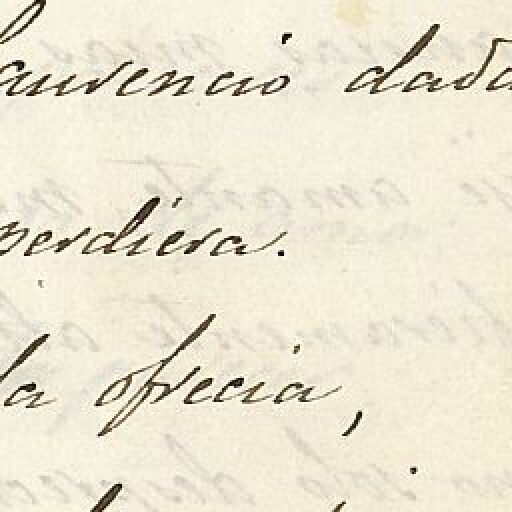 Laurencio dada
perdiera.
la ofrecia,